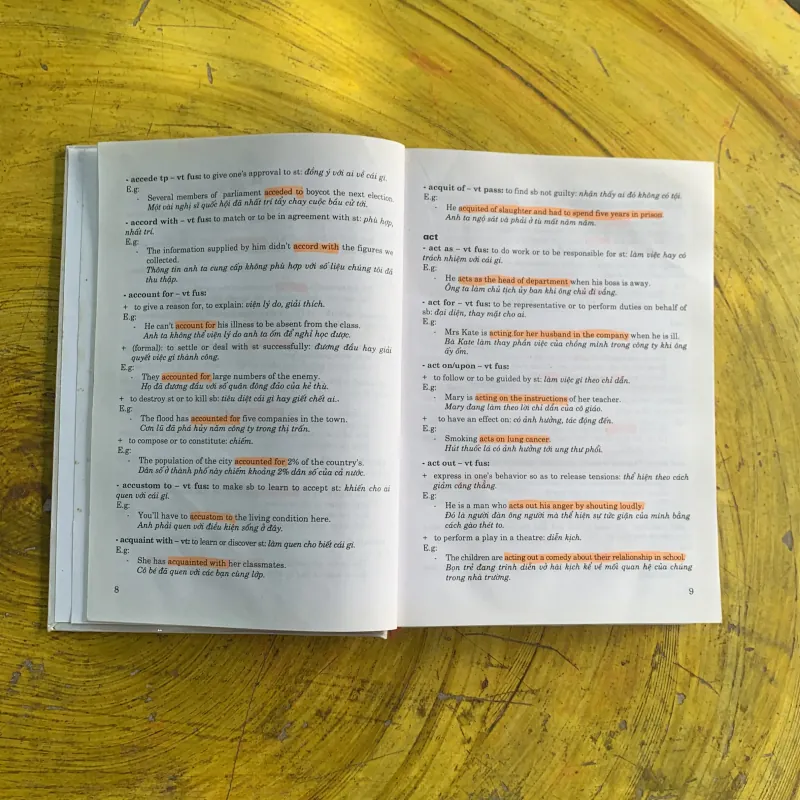 - accede tp – vt fus: to give one's approval to st: đồng ý với ai về cái gì.
E.g:
- Several members of parliament acceded to boycot the next election.
Một vài nghị sĩ quốc hội đã nhất trí tẩy chay cuộc bầu cử tới.
- accord with – vt fus: to match or to be in agreement with st: phù hợp,
nhất trí.
E.g:
- The information supplied by him didn't accord with the figures we
collected.
Thông tin anh ta cung cấp không phù hợp với số liệu chúng tôi đã
thu thập.
- account for – vt fus:
+ to give a reason for, to explain: viện lý do, giải thích.
E.g:
- He can't account for his illness to be absent from the class.
Anh ta không thể viện lý do anh ta ốm để nghỉ học được.
+ (formal): to settle or deal with st successfully: đương đầu hay giải
quyết việc gì thành công.
E.g:
- They accounted for large numbers of the enemy.
Họ đã đương đầu với số quân đông đảo của kẻ thù.
+ to destroy st or to kill sb: tiêu diệt cái gì hay giết chết ai..
E.g:
- The flood has accounted for five companies in the town.
Cơn lũ đã phá hủy năm công ty trong thị trấn.
+ to compose or to constitute: chiếm.
E.g:
- The population of the city accounted for 2% of the country's.
Dân số ở thành phố này chiếm khoảng 2% dân số của cả nước.
- accustom to – vt fus: to make sb to learn to accept st: khiến cho ai
quen với cái gì.
E.g:
- You'll have to accustom to the living condition here.
Anh phải quen với điều kiện sống ở đây.
- acquaint with – vt: to learn or discover st: làm quen cho biết cái gì.
E.g:
- She has acquainted with her classmates.
Cô bé đã quen với các bạn cùng lớp.
8
- acquit of – vt pass: to find sb not guilty: nhận thấy ai đó không có tội.
E.g:
- He acquited of slaughter and had to spend five years in prison.
Anh ta ngộ sát và phải ở tù mất năm năm.
act
- act as – vt fus: to do work or to be responsible for st: làm việc hay có
trách nhiệm với cái gì.
E.g:
- He acts as the head of department when his boss is away.
Ông ta làm chủ tịch ủy ban khi ông chủ đi vắng.
- act for – vt fus: to be representative or to perform duties on behalf of
sb: đại diện, thay mặt cho ai.
E.g:
- Mrs Kate is acting for her husband in the company when he is ill.
Bà Kate làm thay phần việc của chồng mình trong công ty khi ông
ấy ốm.
- act on/upon – vt fus:
+ to follow or to be guided by st: làm việc gì theo chỉ dẫn.
E.g:
- Mary is acting on the instructions of her teacher.
Mary đang làm theo lời chỉ dẫn của cô giáo.
+ to have an effect on: có ảnh hưởng, tác động đến.
E.g:
- Smoking acts on lung cancer.
Hút thuốc lá có ảnh hưởng tới ung thư phổi.
- act out – vt fus:
+ express in one's behavior so as to release tensions: thể hiện theo cách
giảm căng thẳng.
E.g:
- He is a man who acts out his anger by shouting loudly.
Đó là người đàn ông người mà thể hiện sự tức giận của mình bằng
cách gào thét to.
+ to perform a play in a theatre: diễn kịch.
E.g:
- The children are acting out a comedy about their relalionship in school.
Bọn trẻ đang trình diễn vở hài kịch kể về mối quan hệ của chúng
trong nhà trường.
9